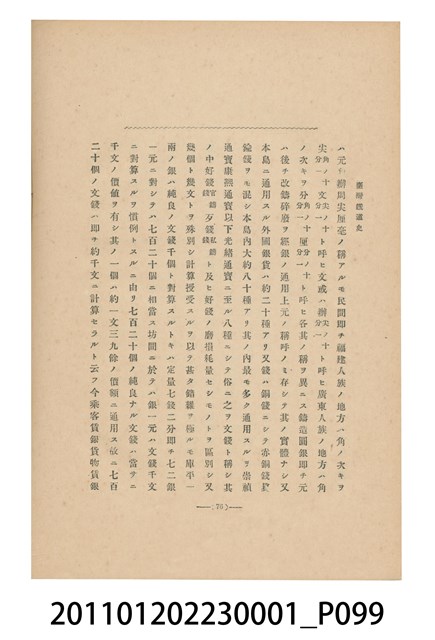 臺灣鐵道史
ハ元角辦周尖厘毫ノ稱アルモ民間即チ福建人族ノ地方ハ角ノ次キヲ
尖角ノ十分一文尖ノ十分一ト呼ヒ文或ハ辦尖ノ十分一ト呼ヒ廣東人族ノ地方ハ角
ノ次キヲ分角ノ十分一厘分ノ十分一ト呼ヒ各其ノ稱ヲ異ニス鑄造圓銀即チ元
ハ後チ改鑄碎磨ヲ經銀ノ通用上元ノ稱呼ノミ存シテ其ノ實體ナシ又
本島ニ通用スル外國銀貨ハ約二十種アリ又錢ハ銅錢ニシテ赤銅錢
錢ヲモ混シ本島内大約八十種アリ其ノ内最モ多ク通用スルヲ崇禎
通寶康熙通寶以下光緒通寶ニ至ル八種ニシテ俗ニ之ヲ文錢ト稱シ其
ノ中好錢官鑄錢歹錢私鑄錢ト及ヒ好錢ノ磨損耗量セシモノトヲ區別シ又
幾個ト幾文トヲ殊別シ計算授受スルヲ以テ甚タ錯雜ヲ極ルモ庫平一
兩ノ銀ハ純良ノ文錢千個ト對算スルトキハ定量七錢二分即チ七二銀
一元ニ對シテハ七百二十個ニ相當ス坊間ニ於テハ銀一元ハ文錢千文
ニ對算スルヲ慣例トスルニ由リ七百二十個ノ純良ナル文錢ハ當サニ
千文ノ價値ヲ有シ其ノ一個ハ約一文三九餘ノ價額ニ通用ス故ニ七百
二十個ノ文錢ハ即チ約千文ニ計算セラルト云フ今乘客賃銀貨物賃銀
(76)
201101202230001_P099